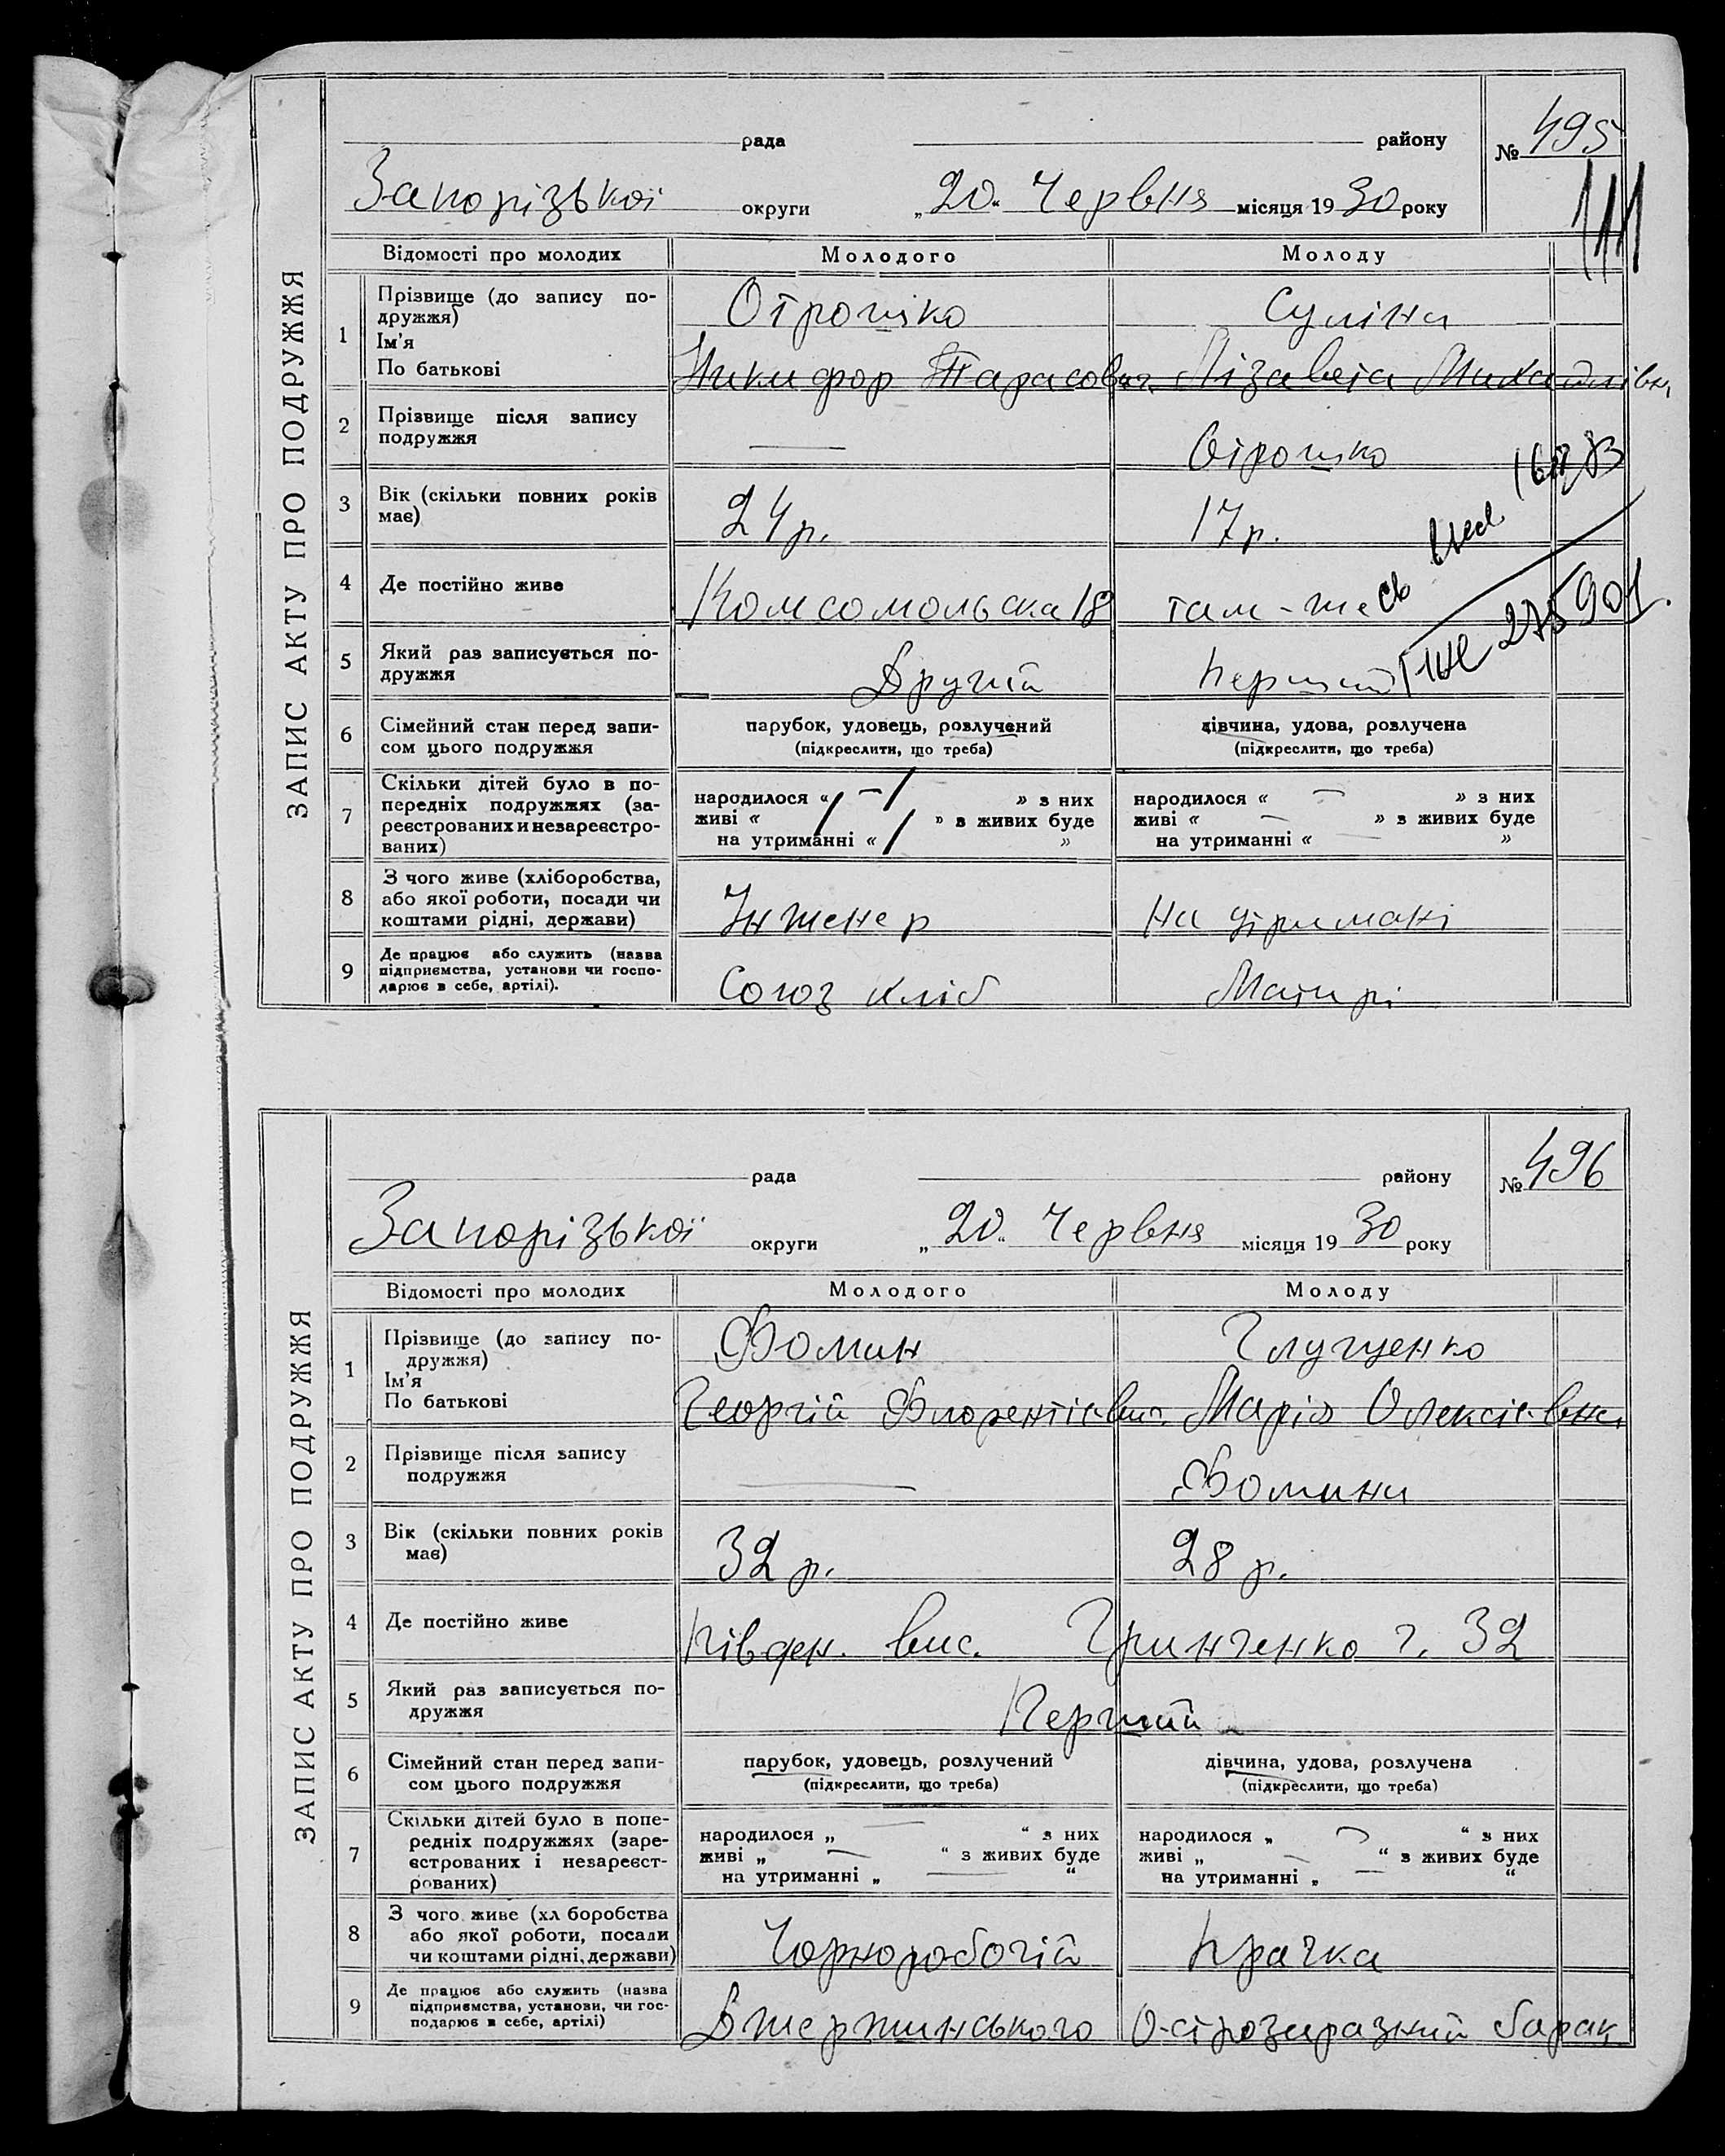 ЗАПИС АКТУ ПРО ПОДРУЖЖЯ
рада району № 495
Запорізької округи „20“ Червня місяця 1930 року
Відомості про молодих Молодого Молоду
1 Прізвище (до запису по-
дружжя)
Ім'я
По батькові
Отрошко Суліна
Никифор Тарасович Лізавета Михайлівн
2 Прізвище після запису
подружжя
— Отрошко
3 Вік (скільки повних років
має)
24 р. 17 р.
4 Де постійно живе Комсомольска 18 там-же
5 Який раз записується по-
дружжя
Другий перший
275901
6 Сімейний стан перед запи-
сом цього подружжя
парубок, удовець, розлучений
(підкреслити, що треба)
дівчина, удова, розлучена
(підкреслити, що треба)
7 Скільки дітей було в по-
передніх подружжях (за-
реєстрованих и незареєстро-
ваних)
народилося « — » з них
живі « » з живих буде
на утриманні « »
народилося « — » з них
живі « — » з живих буде
на утриманні « — »
8 З чого живе (хліборобства,
або якої роботи, посади чи
коштами рідні, держави)
Інженер На утримані
9 Де працює або служить (назва
підприємства, установи чи госпо-
дарює в себе, артілі).
Союз хліб Матирі
ЗАПИС АКТУ ПРО ПОДРУЖЖЯ
рада району № 496
Запорізької округи „20“ Червня місяця 1930 року
Відомості про молодих Молодого Молоду
1 Прізвище (до запису по-
дружжя)
Ім'я
По батькові
Фомин Глущенко
Георгій Флорентієвич Марія Олексієвна
2 Прізвище після запису
подружжя
— Фомина
3 Вік (скільки повних років
має)
32 р. 28 р.
4 Де постійно живе Півден. вис. Гринченко г. 32
5 Який раз записується по-
дружжя
Перший
6 Сімейний стан перед запи-
сом цього подружжя
парубок, удовець, розлучений
(підкреслити, що треба)
дівчина, удова, розлучена
(підкреслити, що треба)
7 Скільки дітей було в попе-
редніх подружжях (заре-
єстрованих і незареєст-
рованих)
народилося „ — “ з них
живі „ — “ з живих буде
на утриманні „ — “
народилося „ — “ з них
живі „ — “ з живих буде
на утриманні „ — “
8 З чого живе (хл боробства
або якої роботи, посади
чи коштами рідні, держави)
Чорноробочій Прачка
9 Де працює або служить (назва
підприємства, установи, чи гос-
подарює в себе, артілі)
Джержинського О-строзаразний барак